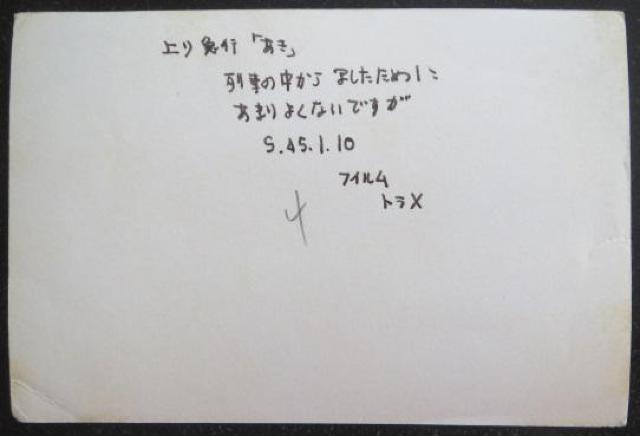 上り急行「あき」
列車の中から写したために
あまりよくないですが
S.45.1.10
フイルム
トラX
4